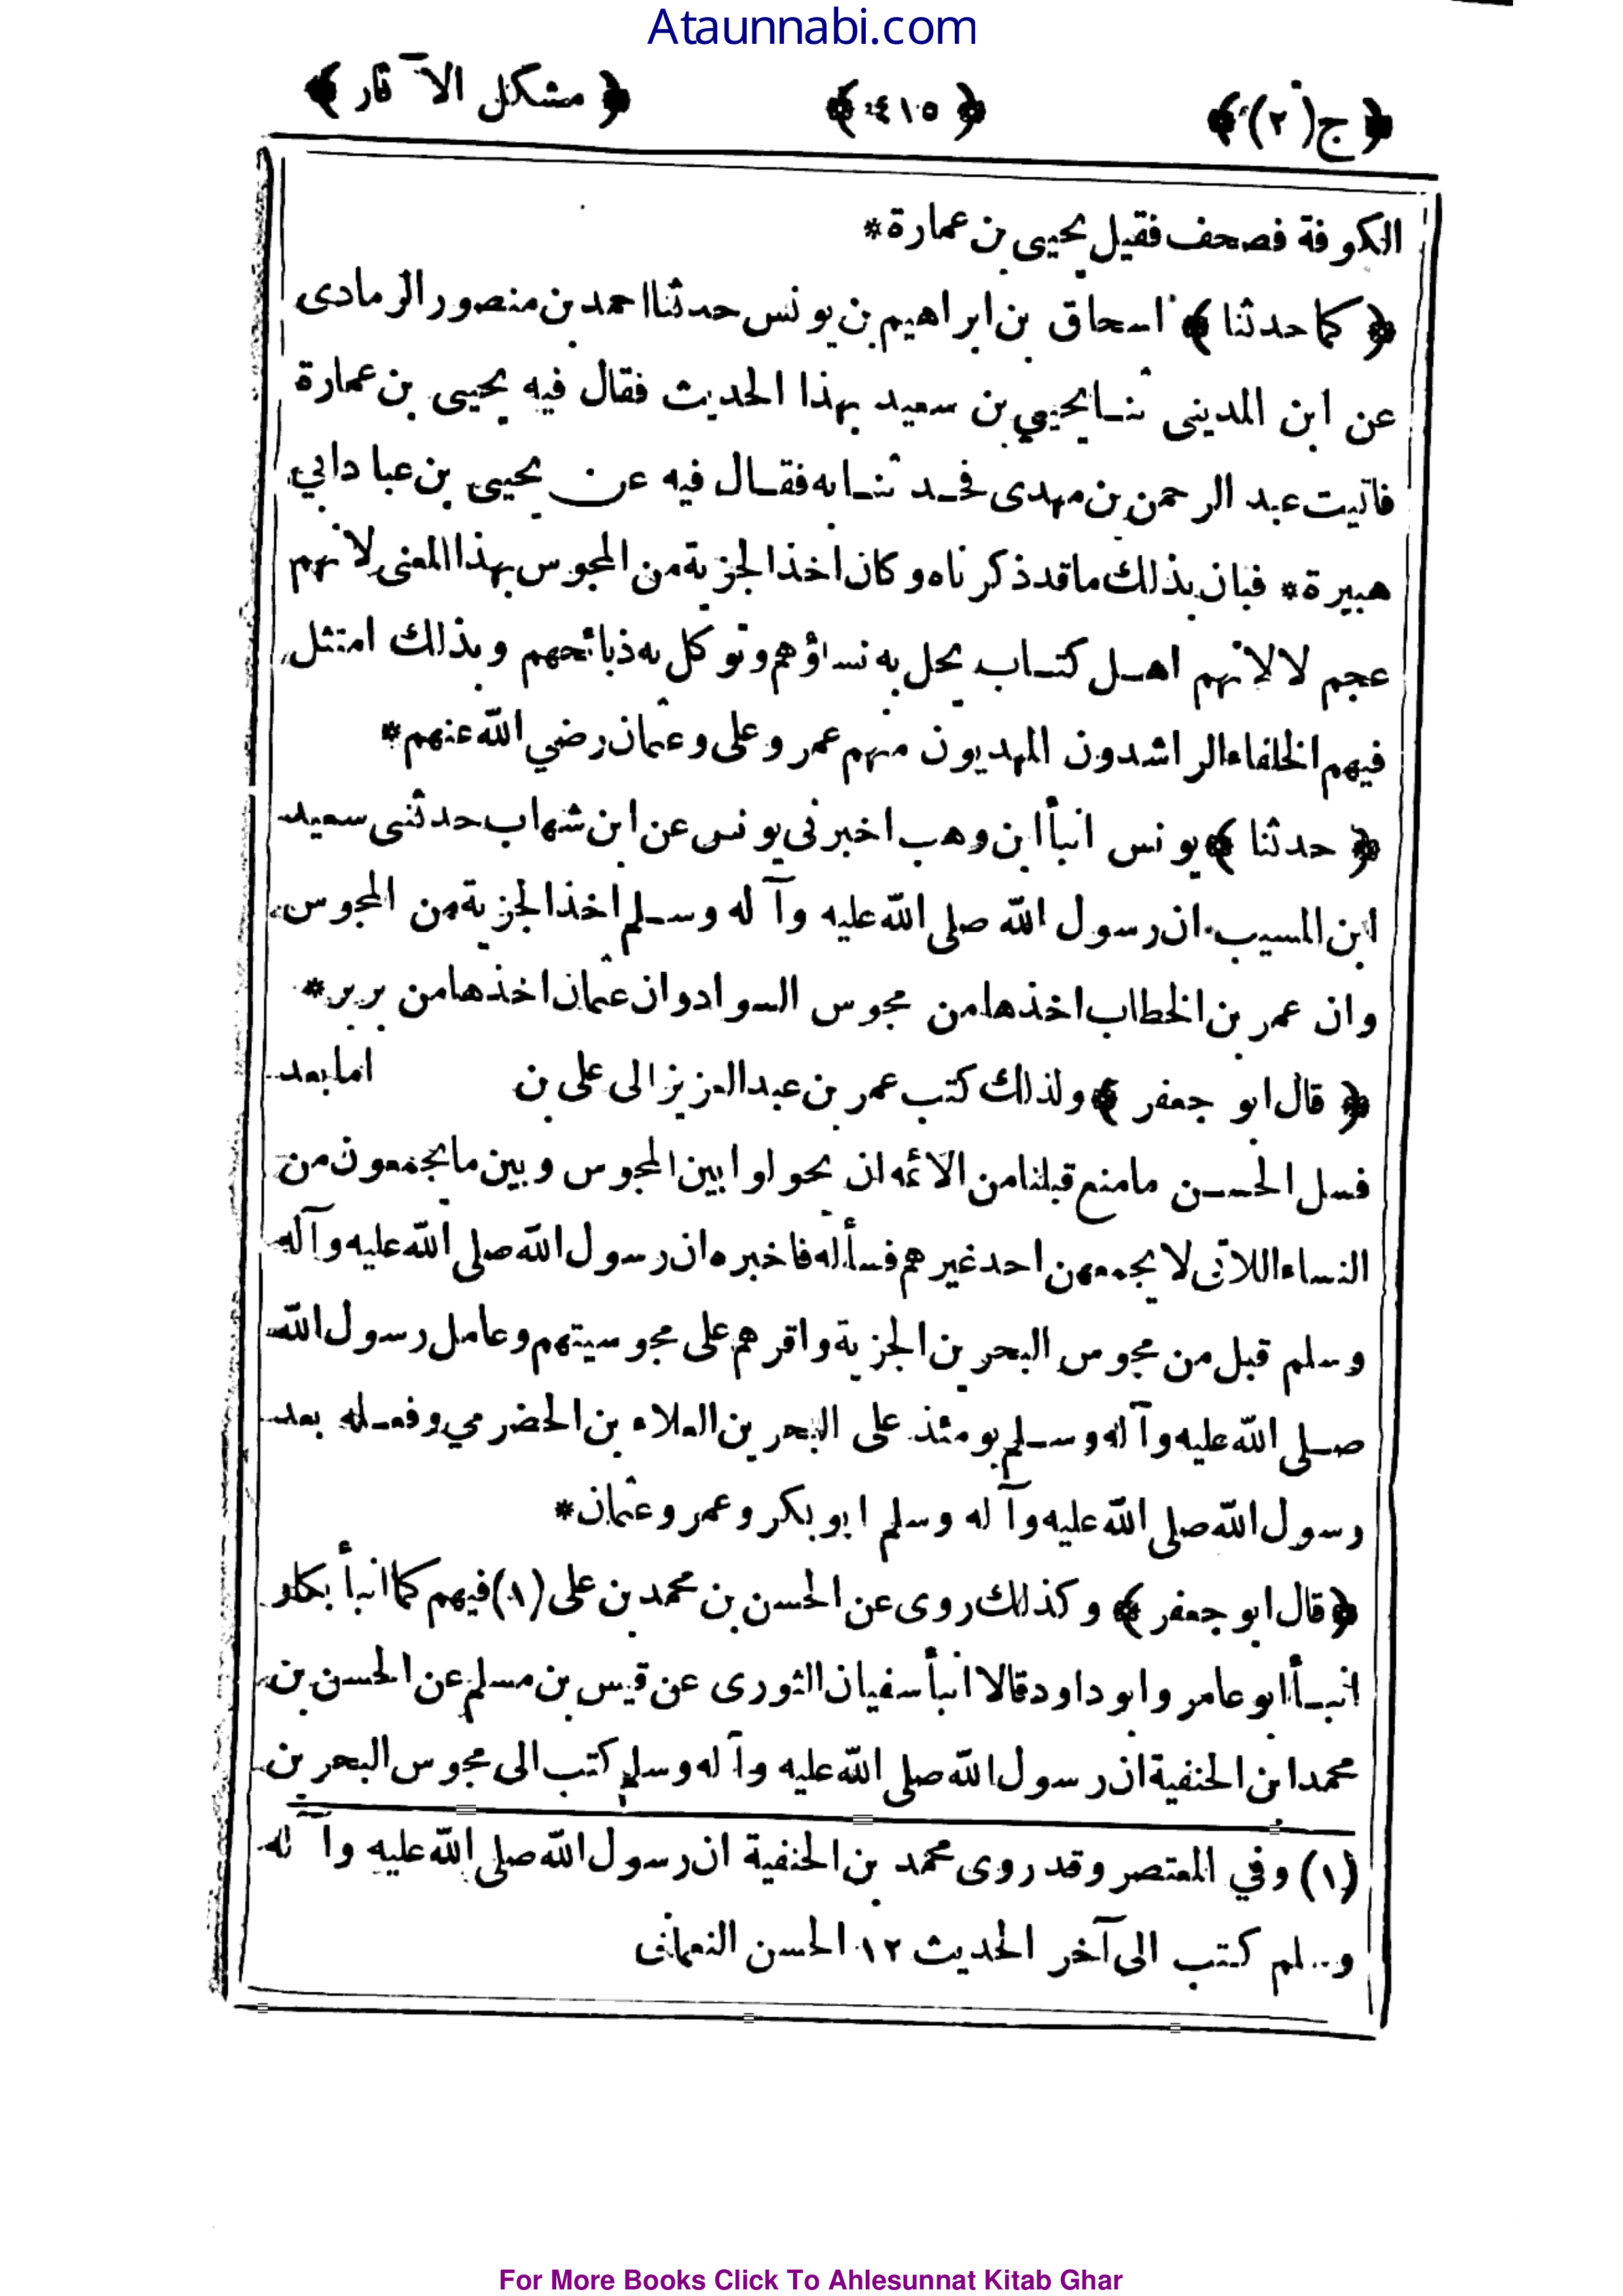 Ataunnabi.com
﴿ ج (٢) ﴾ ﴿ ٤١٥ ﴾ ﴿ مشكل الآثار ﴾
الكوفة فصحف فقيل يحيى بن عمارة *
﴿ كما حدثنا ﴾ اسحاق بن ابراهيم بن يونس حدثنا احمد بن منصور الرمادى
عن ابن المدينى ثنا يحيى بن سعيد بهذا الحديث فقال فيه يحيى بن عمارة
فاتيت عبد الرحمن بن مهدى فحد ثنا به فقال فيه عن يحيى بن عباد ابي
هبيرة * فبان بذلك ما قد ذكرناه وكان اخذ الجزية من المجوس بهذا المعنى لانهم
عجم لا لانهم اهل كتاب يحل به نساؤهم وتوكل به ذبائحهم وبذلك امتثل
فيهم الخلفاء الراشدون المهديون منهم عمر وعلى وعثمان رضي الله عنهم *
﴿ حدثنا ﴾ يونس انبأ ابن وهب اخبرنى يونس عن ابن شهاب حدثنى سعيد
ابن المسيب ان رسول الله صلى الله عليه وآله وسلم اخذ الجزية من المجوس
وان عمر بن الخطاب اخذها من مجوس السواد وان عثمان اخذها من بربر *
﴿ قال ابو جعفر ﴾ ولذلك كتب عمر بن عبد العزيز الى على بن اما بعد
فسل الحسن ما منع قبلنا من الائمه ان يحولوا بين المجوس وبين ما يجمعون من
النساء اللاتى لا يجمعهن احد غيرهم فسأله فاخبره ان رسول الله صلى الله عليه وآله
وسلم قبل من مجوس البحرين الجزية واقرهم على مجوسيتهم وعامل رسول الله
صلى الله عليه وآله وسلم يومئذ على البحرين العلاء بن الحضرمي وفعله بعد
رسول الله صلى الله عليه وآله وسلم ابو بكر وعمر وعثمان *
﴿ قال ابو جعفر ﴾ وكذلك روى عن الحسن بن محمد بن على (١) فيهم كما انبأ بكار
انبأ ابو عامر وابو داود قالا انبأ سفيان الثورى عن قيس بن مسلم عن الحسن بن
محمد ابن الحنفية ان رسول الله صلى الله عليه وآله وسلم كتب الى مجوس البحرين
(١) وفي المعتصر وقد روى محمد بن الحنفية ان رسول الله صلى الله عليه وآله
وسلم كتب الى آخر الحديث ١٢ الحسن النعمانى
For More Books Click To Ahlesunnat Kitab Ghar